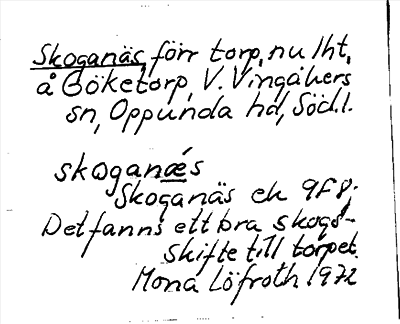 Skoganäs, förr torp, nu lht,
å Göketorp, V. Vingåkers
sn, Oppunda hd, Södl.
skoganǽs
Skoganäs ek 9F8;
Det fanns ett bra skogs-
skifte till torpet.
Mona Löfroth 1972